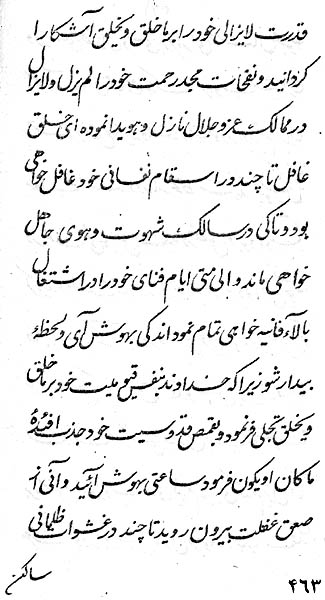 قدرت لایزالی خود را بر ما خلق و یخلق آشکارا
گردانید و نفحات مجد رحمت خود را لم یزل و لایزال
در ممالک عز و جلال نازل و هویدا نموده ای خلق
غافل تا چند در اسقام نفسانی خود غافل خواهی
بود و تا کی در سالک شهوت و هوی جاهل
خواهی ماند و الی متی ایام فنای خود را در اشتغال
بالاء فانیه خواهی تمام نمود اندکی بهوش آی و لحظهٔ
بیدار شو زیرا که خداوند بنفس قیومیت خود بر ما خلق
و یخلق تجلی فرمود و بقمص قدوسیت خود جذب افئدهٔ
ما کان او یکون فرمود ساعتی بهوش آئید و آنی از
صعق غفلت بیرون روید تا چند در غشوات ظلمانی
ساکن
۴۶۳